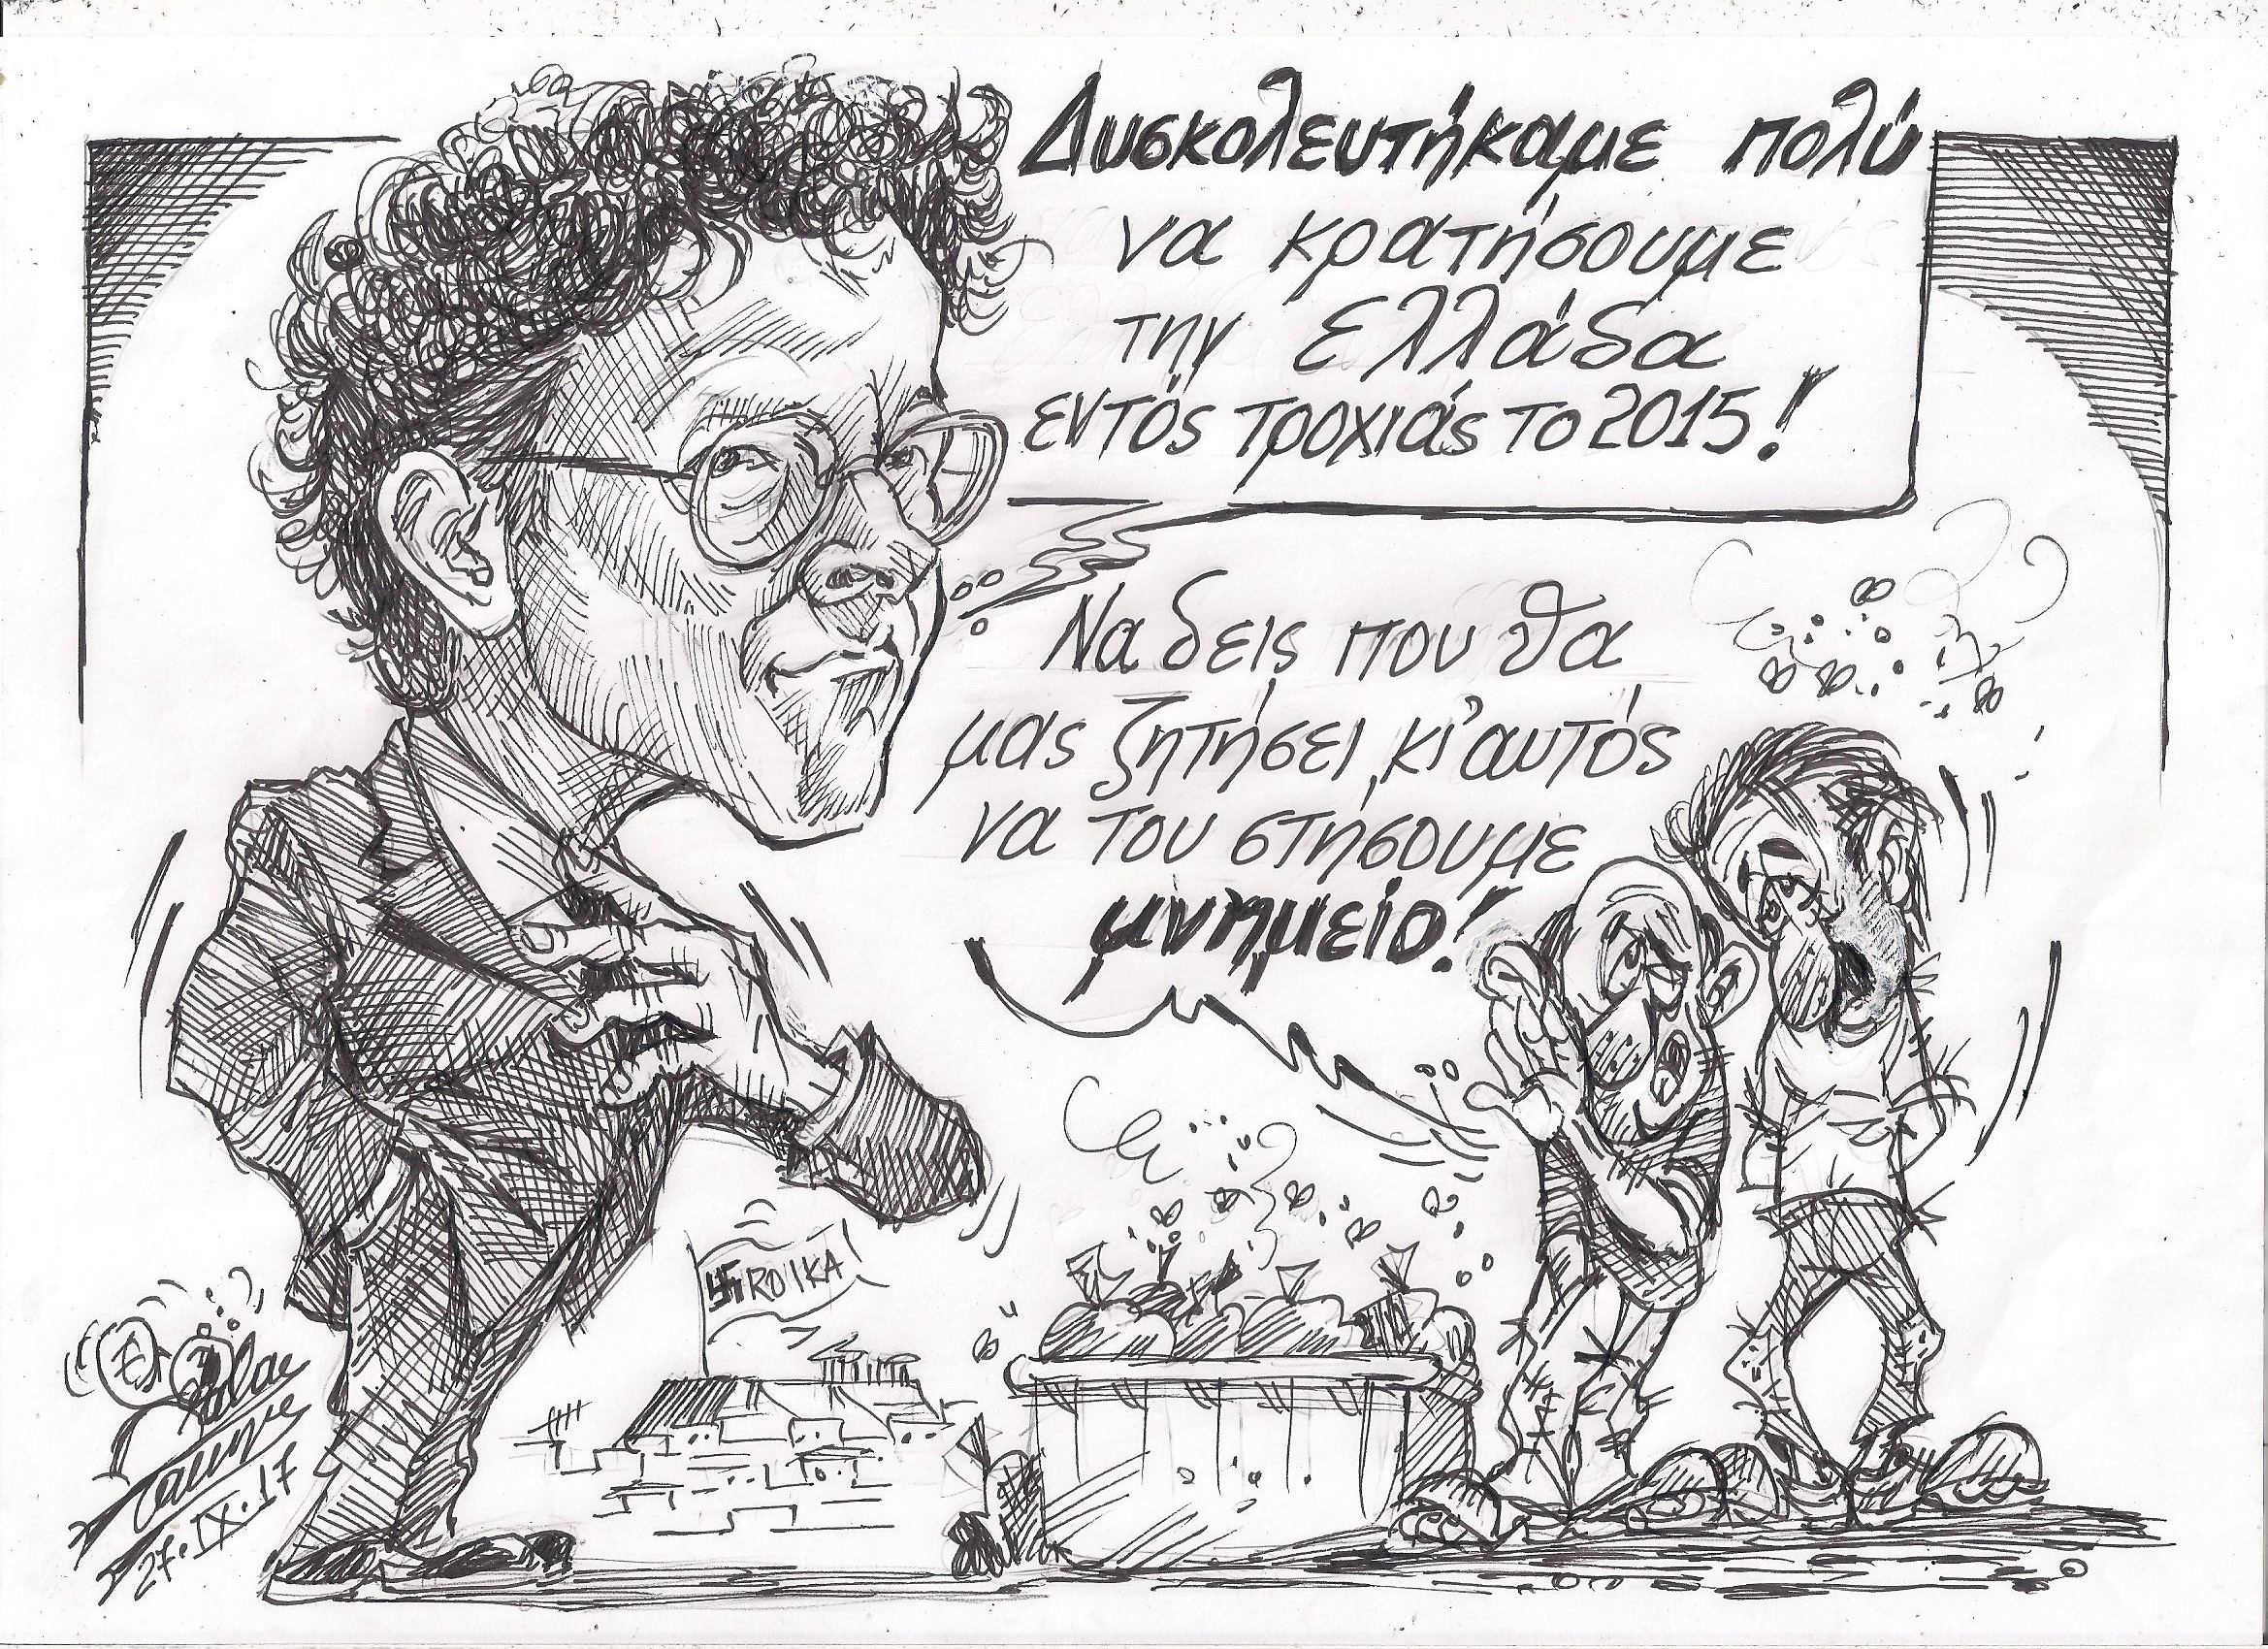 Δυσκολευτήκαμε πολύ
να κρατήσουμε
την Ελλάδα
εντός τροχιάς το 2015!
Να δεις που θα
μας ζητήσει κι'αυτός
να του στήσουμε
μνημείο!
ROIKA!
27.IX.17